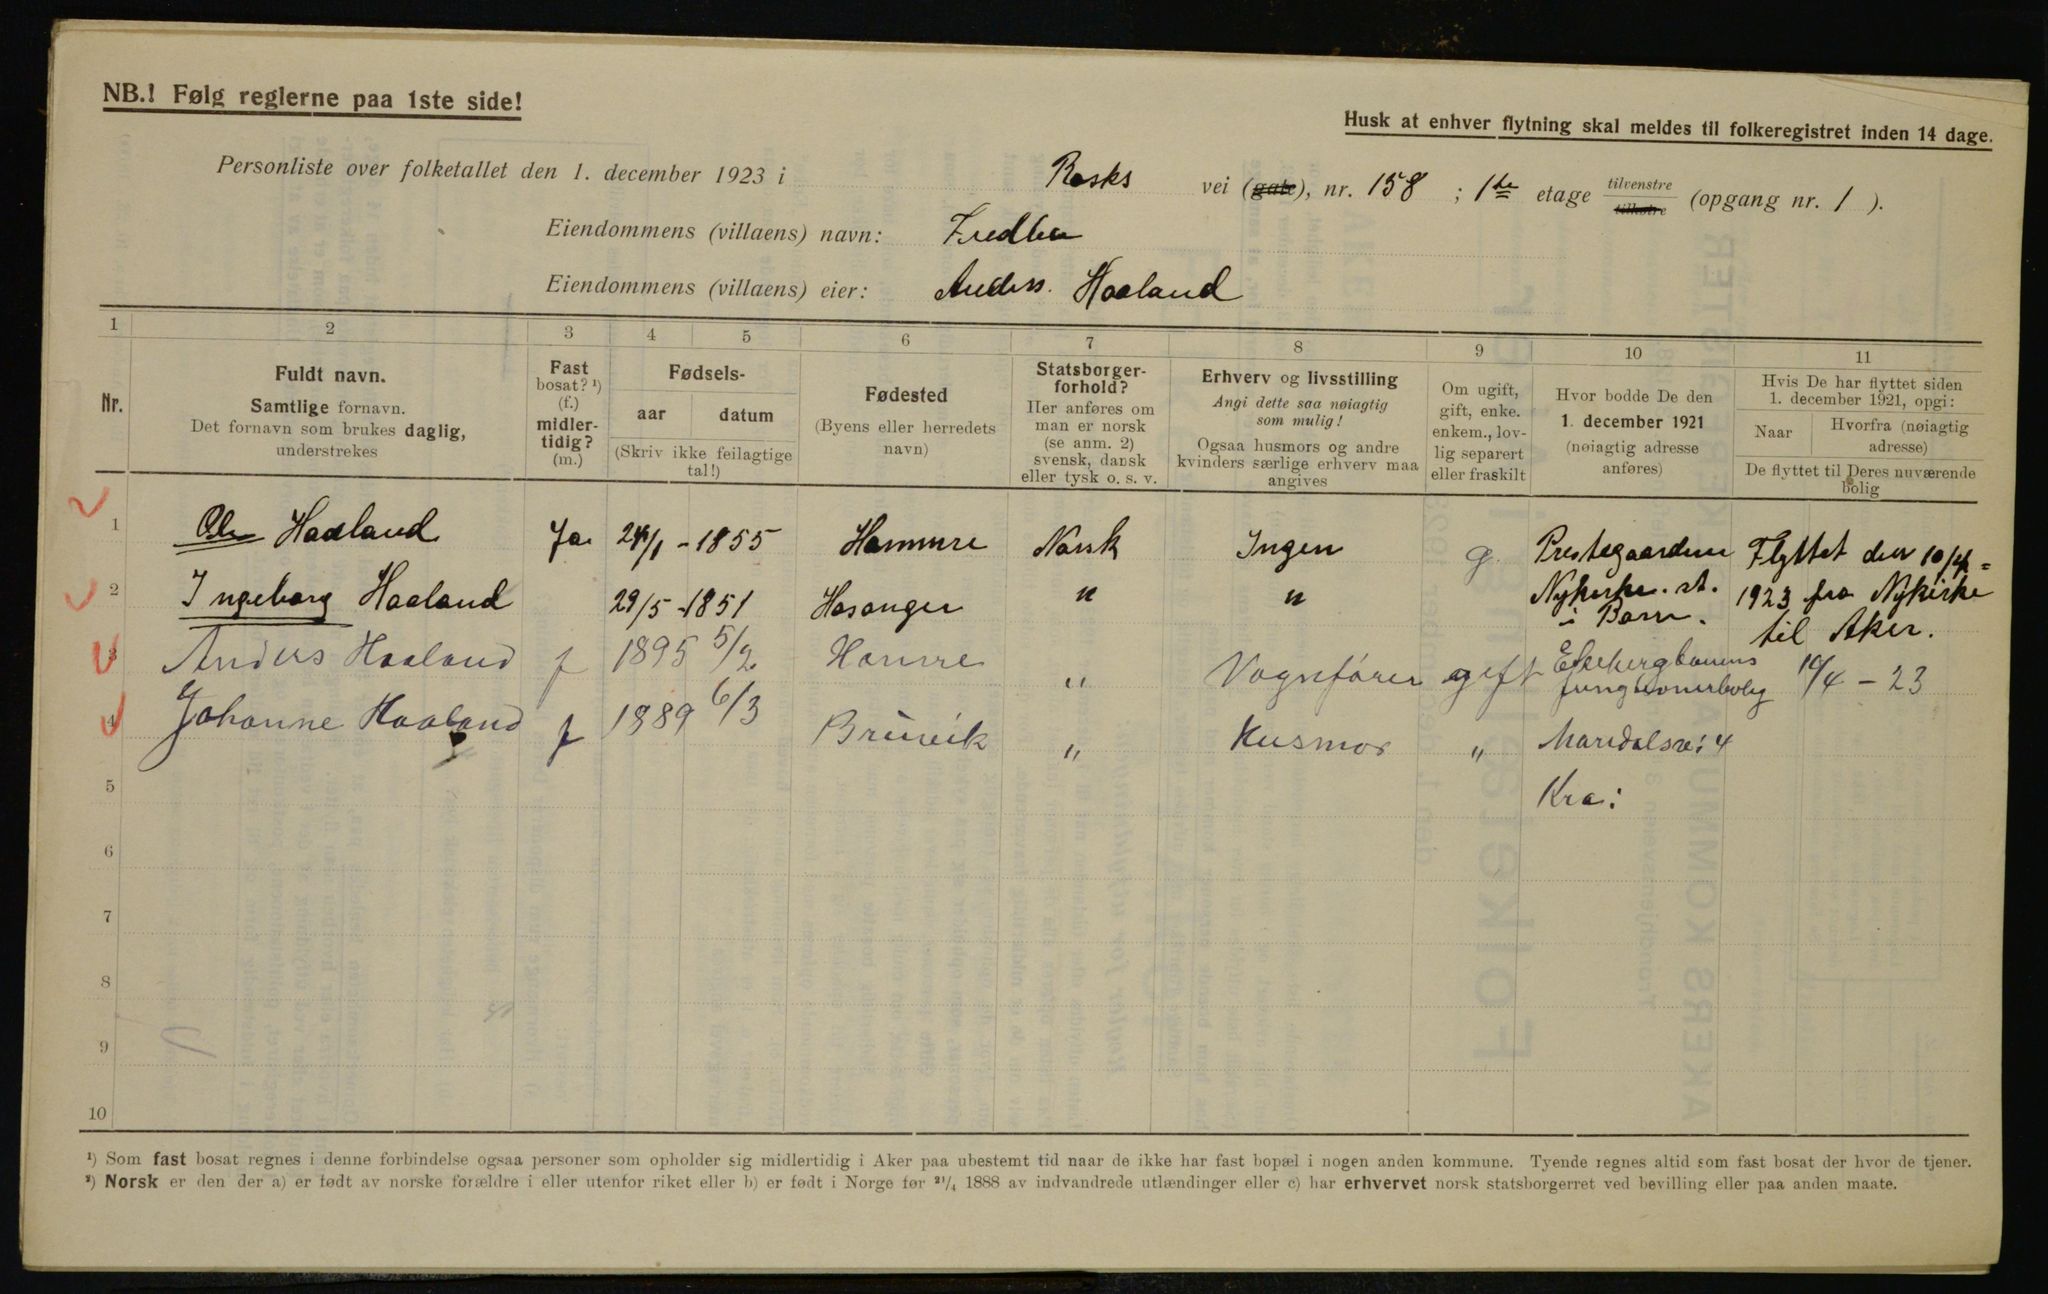 NB.! Følg reglerne paa 1ste side!
Husk at enhver flytning skal meldes til folkeregistret inden 14 dage.
Personliste over folketallet den 1. december 1923 i Rasks vei (gate), nr. 158 ; 1ste etage tilvenstre tilhøire (opgang nr. 1 ).
Eiendommens (villaens) navn: Fredbo
Eiendommens (villaens) eier: Anders Haaland
1 2 3 4 5 6 7 8 9 10 11
Nr.
Fuldt navn.
Samtlige fornavn.
Det fornavn som brukes daglig,
understrekes
Fast
bosat? ¹)
(f.)
midler-
tidig?
(m.)
Fødsels-
aar datum
(Skriv ikke feilagtige
tal!)
Fødested
(Byens eller herredets
navn)
Statsborger-
forhold?
Her anføres om
man er norsk
(se anm. 2)
svensk, dansk
eller tysk o. s. v.
Erhverv og livsstilling
Angi dette saa nøiagtig
som mulig!
Ogsaa husmors og andre
kvinders særlige erhverv maa
angives
Om ugift,
gift, enke.
enkem., lov-
lig separert
eller fraskilt
Hvor bodde De den
1. december 1921
(nøiagtig adresse
anføres)
Hvis De har flyttet siden
1. december 1921, opgi:
Naar Hvorfra (nøiagtig
adresse)
De flyttet til Deres nuværende
bolig
1 Ole Haaland Ja 24/1 - 1855 Hammre Norsk Ingen g. Prestegaarden Flyttet den 10/4 =
2 Ingeborg Haaland 29/5 - 1851 Hosanger " " Nykirke st. 1923 fra Nykirke
i Borre. til Aker.
3 Anders Haaland f 1895 5/2 Hamre " Vognfører gift Ekebergbanens 10/4 - 23
funksionærbolig
4 Johanne Haaland f 1889 6/3 Bruvik " Husmor " Maridalsvei 4
5 Kra:
6
7
8
9
10
¹) Som fast bosat regnes i denne forbindelse ogsaa personer som opholder sig midlertidig i Aker paa ubestemt tid naar de ikke har fast bopæl i nogen anden kommune. Tyende regnes altid som fast bosat der hvor de tjener.
²) Norsk er den der a) er født av norske forældre i eller utenfor riket eller b) er født i Norge før ²¹/₄ 1888 av indvandrede utlændinger eller c) har erhvervet norsk statsborgerret ved bevilling eller paa anden maate.